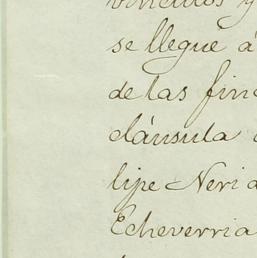 vínculos y
se llegue á
de las fin
cláusula
lipe Neri
Echeverria